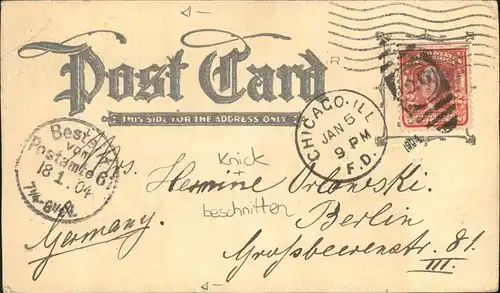 Post Card
THIS SIDE FOR THE ADDRESS ONLY
CHICAGO, ILL
JAN 5
9 PM
F.D.
1904
Best
vom
Postamte 6
18 1. 04
Mrs.
Knick
+
beschnitten
Hermine Orlowski.
Berlin
Germany.
Großbeerenstr. 81.
III.